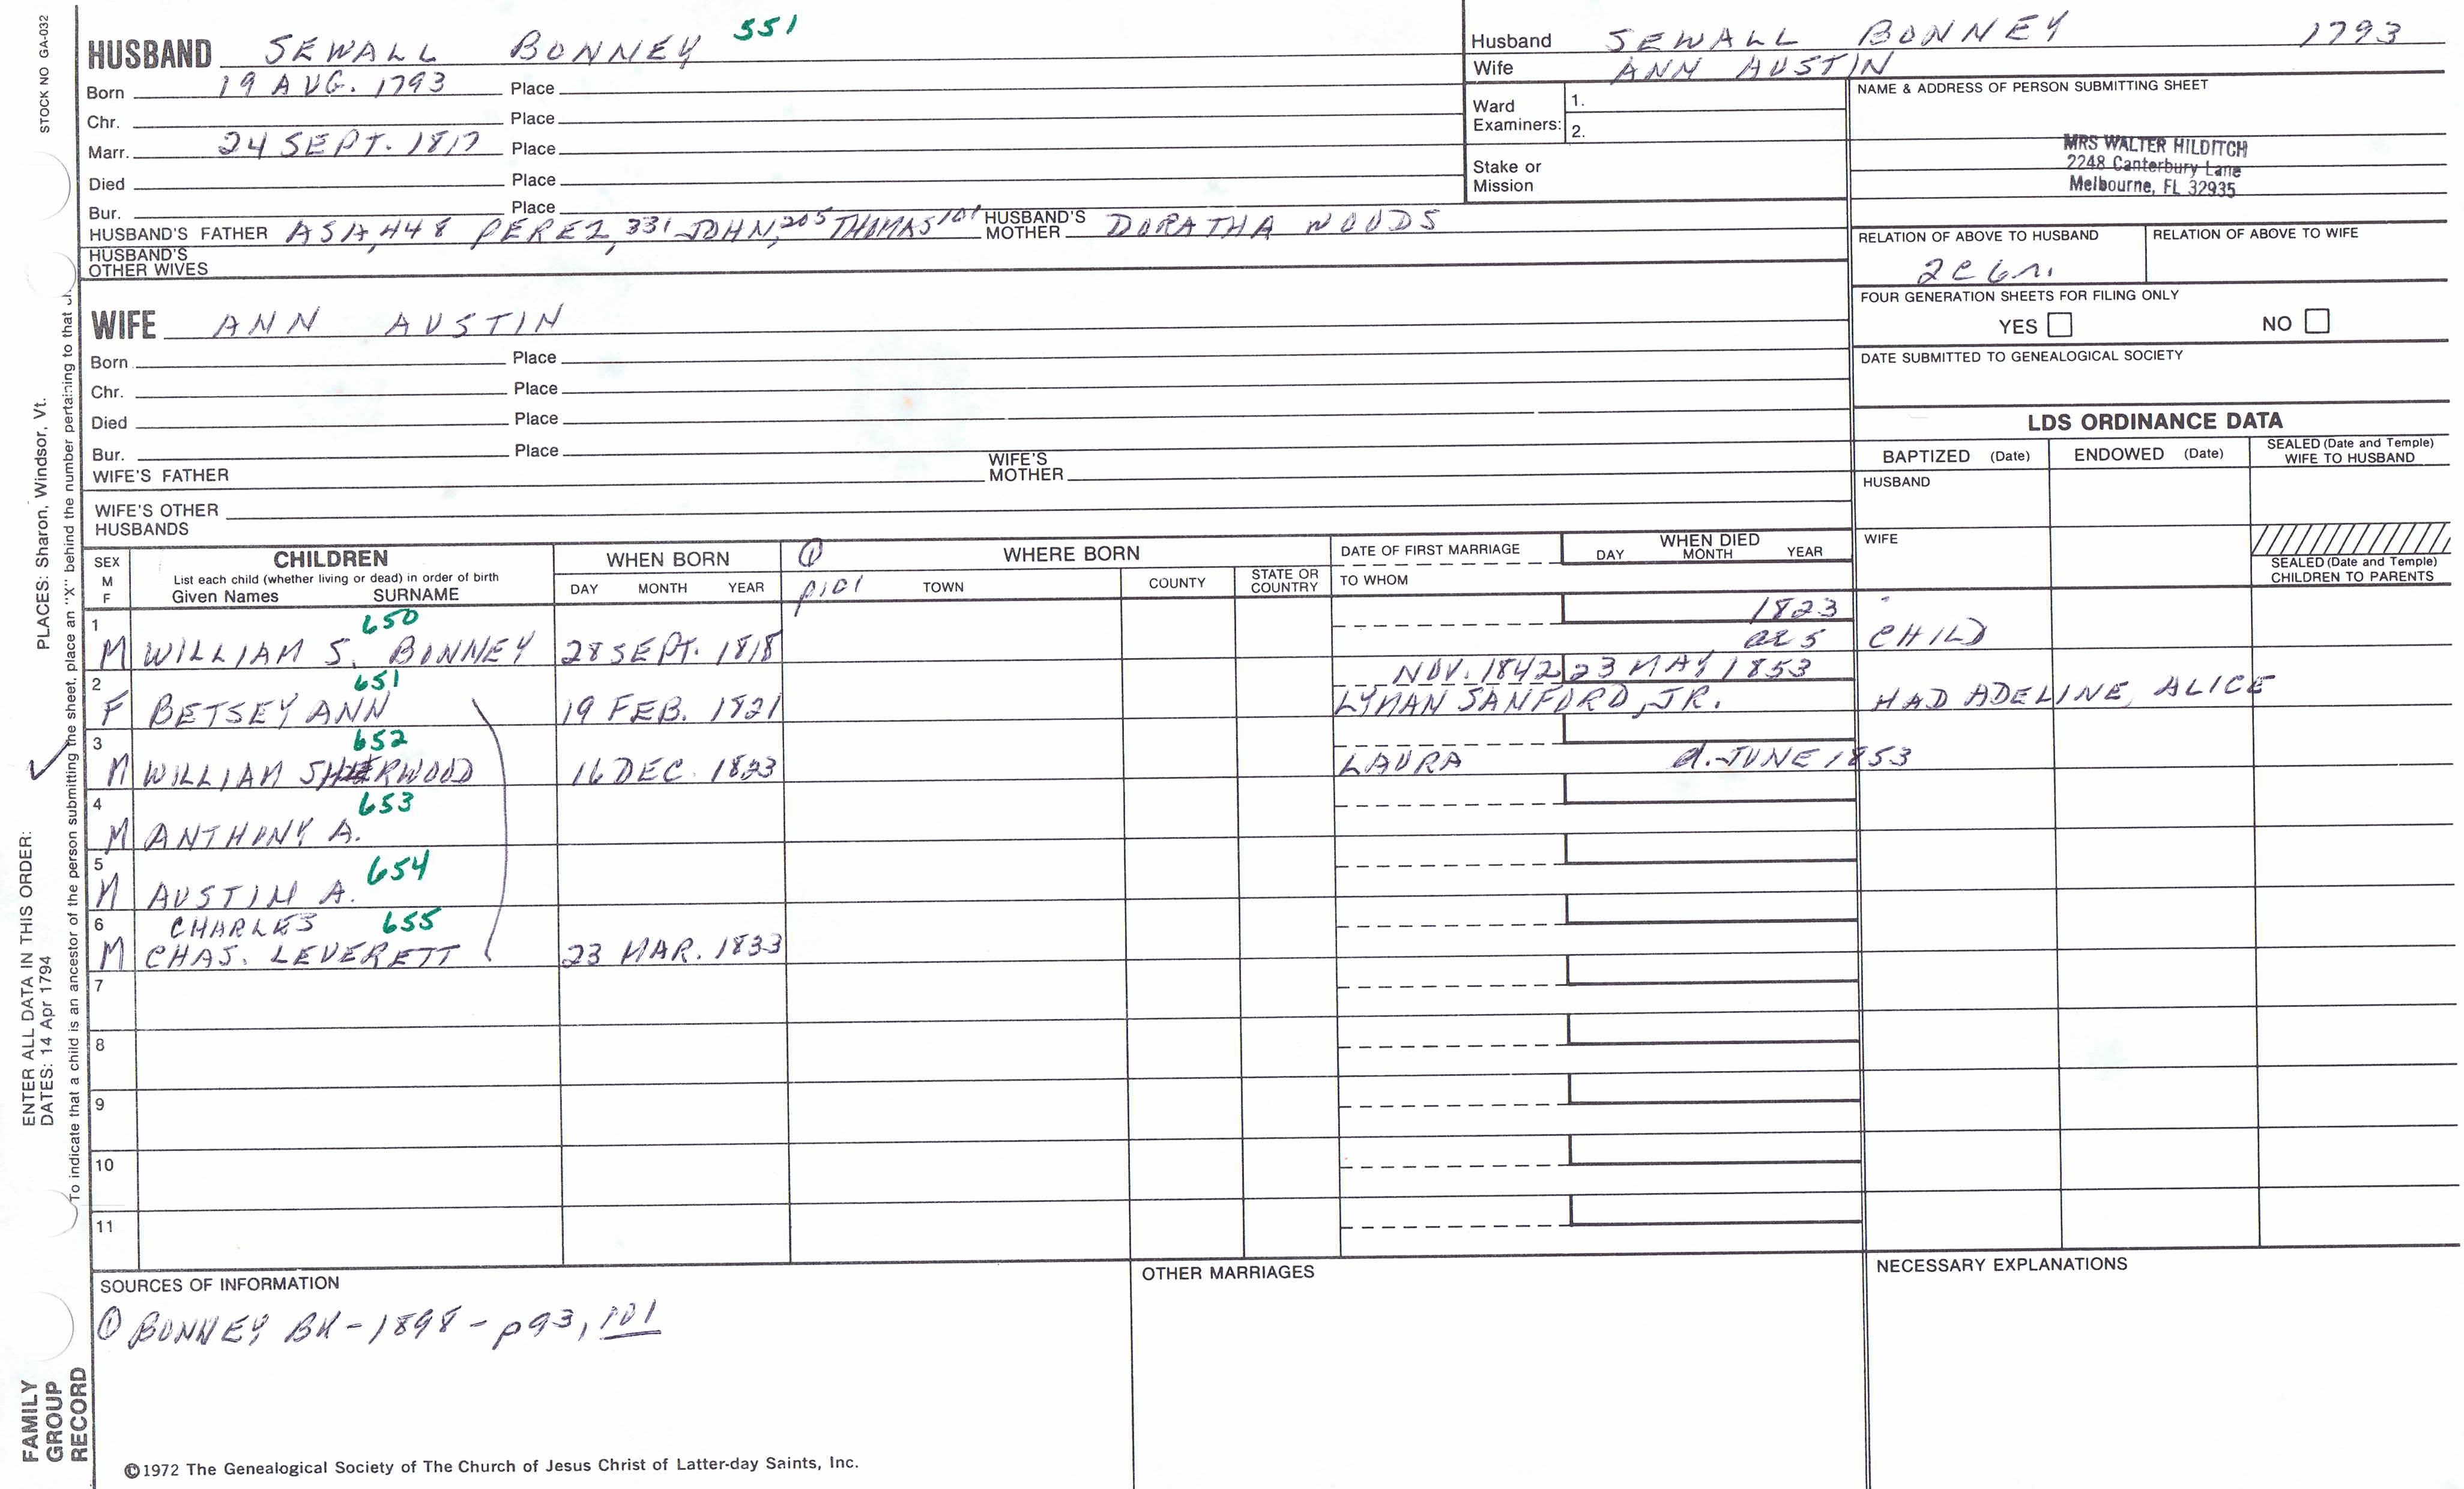 STOCK NO GA-032
HUSBAND SEWALL BONNEY 551
Born 19 AUG. 1793 Place
Chr. Place
Marr. 24 SEPT. 1817 Place
Died Place
Bur. Place
HUSBAND'S FATHER ASA, 448 PEREZ, 331 JOHN, 205 THOMAS 101 HUSBAND'S MOTHER DORATHA WOODS
HUSBAND'S OTHER WIVES
WIFE ANN AUSTIN
Born Place
Chr. Place
Died Place
Bur. Place
WIFE'S FATHER WIFE'S MOTHER
WIFE'S OTHER HUSBANDS
Husband SEWALL BONNEY 1793
Wife ANN AUSTIN
Ward Examiners: 1.
2.
Stake or Mission
NAME & ADDRESS OF PERSON SUBMITTING SHEET
MRS WALTER HILDITCH
2248 Canterbury Lane
Melbourne, FL 32935
RELATION OF ABOVE TO HUSBAND RELATION OF ABOVE TO WIFE
2C 6r.
FOUR GENERATION SHEETS FOR FILING ONLY
YES NO
DATE SUBMITTED TO GENEALOGICAL SOCIETY
LDS ORDINANCE DATA
BAPTIZED (Date) ENDOWED (Date) SEALED (Date and Temple) WIFE TO HUSBAND
HUSBAND
WIFE
SEALED (Date and Temple) CHILDREN TO PARENTS
SEX M F
CHILDREN
List each child (whether living or dead) in order of birth
Given Names SURNAME
WHEN BORN
DAY MONTH YEAR
① WHERE BORN
p101 TOWN COUNTY STATE OR COUNTRY
DATE OF FIRST MARRIAGE
TO WHOM
WHEN DIED
DAY MONTH YEAR
1 650 1823
M WILLIAM S. BONNEY 28 SEPT. 1818 ae 5 CHILD
2 651 NOV. 1842 23 MAY 1853
F BETSEY ANN 19 FEB. 1821 LYMAN SANFORD, JR. HAD ADELINE, ALICE
3 652
M WILLIAM SHERWOOD 16 DEC. 1823 LAURA d. JUNE 1853
4 653
M ANTHONY A.
5 654
M AUSTIN A.
6 CHARLES 655
M CHAS. LEVERETT 23 MAR. 1833
7
8
9
10
11
SOURCES OF INFORMATION
① BONNEY BK - 1898 - p93, 101
OTHER MARRIAGES
NECESSARY EXPLANATIONS
©1972 The Genealogical Society of The Church of Jesus Christ of Latter-day Saints, Inc.
FAMILY GROUP RECORD
ENTER ALL DATA IN THIS ORDER:
DATES: 14 Apr 1794
PLACES: Sharon, Windsor, Vt.
To indicate that a child is an ancestor of the person submitting the sheet, place an "X" behind the number pertaining to that